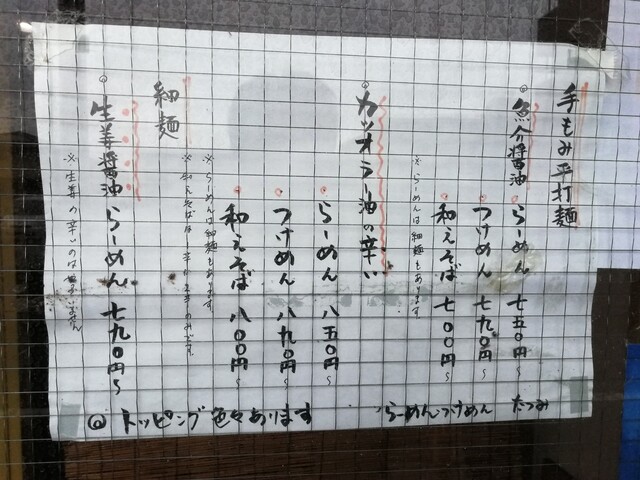 手もみ平打麺
◎魚介醤油
らーめん 七五0円～
つけめん 七九0円～
和えそば 七00円～
※らーめんは細麺もあります。
◎カツオラー油の辛い
らーめん 八五0円～
つけめん 八九0円～
和えそば 八00円～
※らーめんは細麺もあります。
細麺
◎生姜醤油らーめん 七九0円～
※生姜の辛いのは
◎トッピング色々あります
らーめんつけめん たつみ